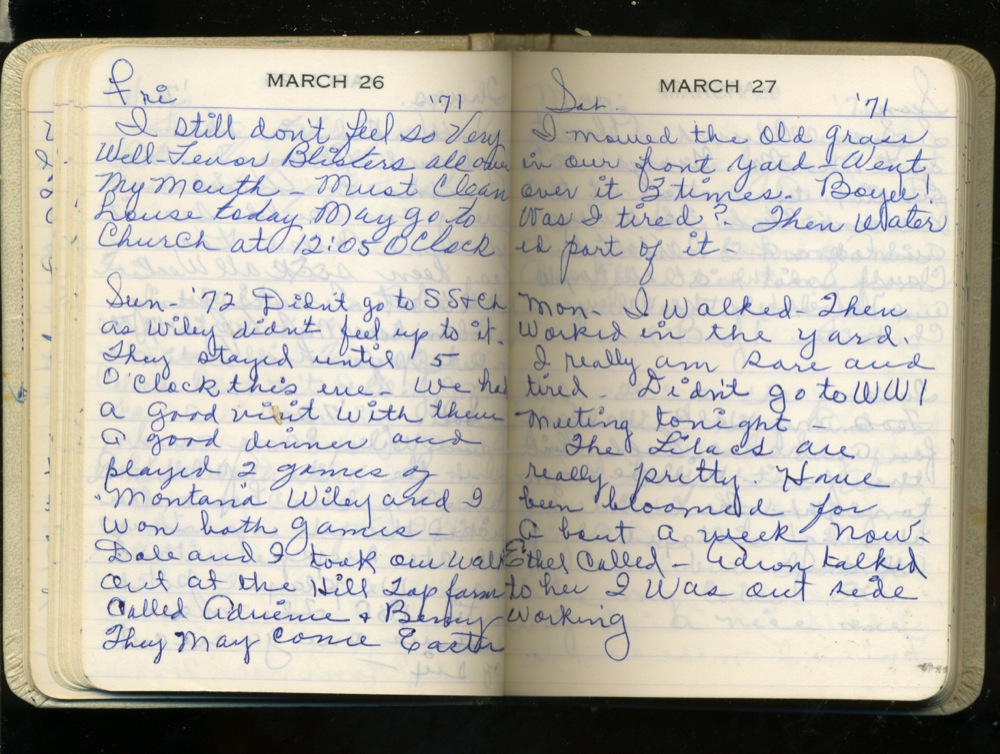 MARCH 26
Fri '71
I still don't feel so Very
Well-Fevor Blisters all over
My Mouth - Must Clean
house today May go to
Church at 12:05 O Clock
Sun - '72 Didnt go to SS & Ch
as Wiley didnt feel up to it.
They stayed until 5
O'Clock this eve - We had
a Good visit with them
a good dinner and
played 2 games of
"Montana Wiley and I
won both games -
Dale and I took our walk
out at the Hill Top farm
Called Adriene & Benny
They May come Easter
MARCH 27
Sat. '71
I mowed the Old Grass
in our front yard - Went
over it 3 times. Boyee!
Was I tired? - Then Water
ed part of it -
Mon - I walked - Then
worked in the yard.
I really am sore and
tired - Didn't go to WW1
Meeting tonight -
The Lilacs are
really pretty. Have
been bloomed for
a bout a week now -
Ethel Called - talked
to her I Was out side
working